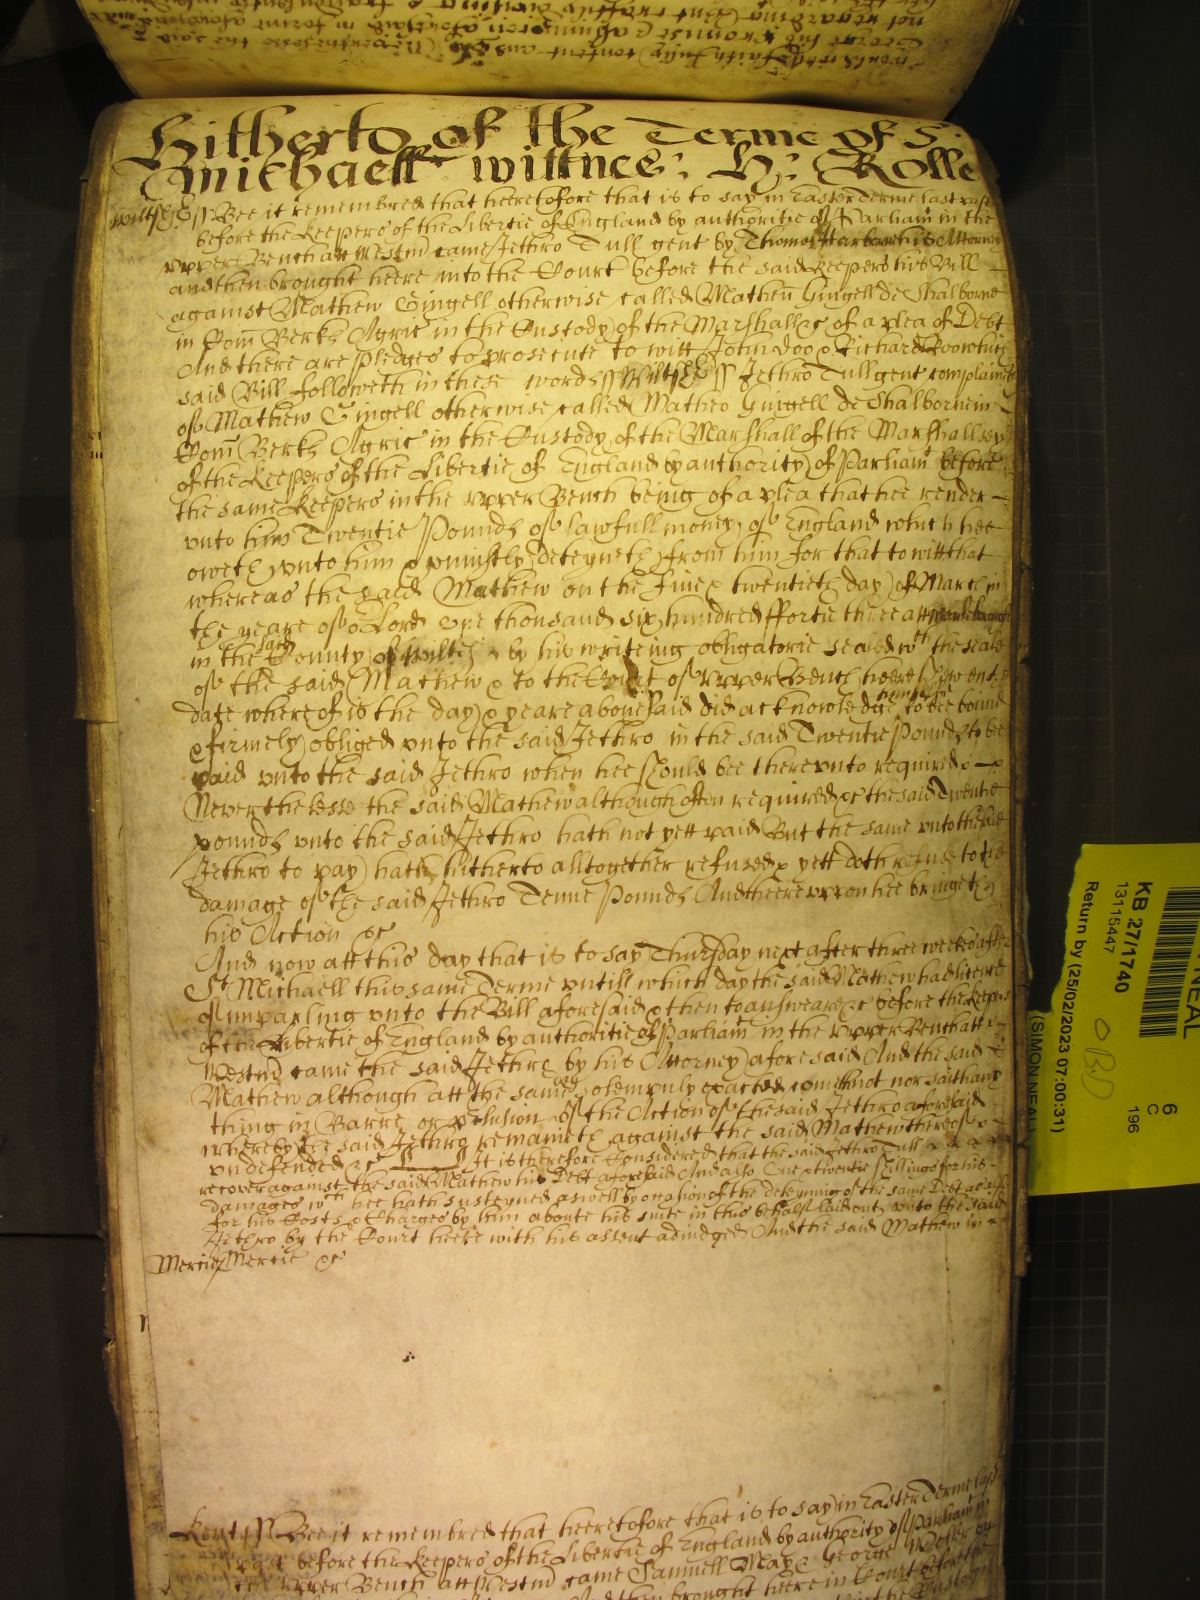 Hitherto of the Terme of S.
Michaell wittnes: H: Rolle
Wiltss ss Bee it remembred that heeretofore that is to say in Easter Terme last past
before the Keepers of the Libertie of England by authoritie of Parliam in the
upper Bench att Westm came Jethro Tull gent by Thomas his Attorney
and then brought heere into the Court before the said Keepers his Bill
against Mathew Gingell otherwise called Matheu Gingell de Shalborne
in Com Berks Agric in the Custody of the Marshall &c of a plea of Debt
And there are pledges to prosecute to witt John Doo & Richard Roo which
said Bill followeth in these words ss Wiltss ss Jethro Tull gent complaineth
of Mathew Gingell otherwise called Matheo Gingell de Shalborne in
Com Berks Agric in the Custody of the Marshall of the Marshallsey
of the Keepers of the Libertie of England by authority of Parliam before
the same Keepers in the upper Bench being of a plea that hee render
unto him Twentie Pounds of lawfull money of England which hee
oweth unto him & uniustly deteyneth from him for that to witt that
whereas the said Mathew on the Five & twentieth day of March in
the yeare of or Lord one thousand six hundred ffortie three att
in the said County of Wiltes by his writeing obligatorie sealed wth the seale
of the said Mathew & to the Court of upper Bench heere shewen the
date whereof is the day & yeare abovesaid did acknowledge himselfe to bee bound
& firmely obliged unto the said Jethro in the said Twentie Pounds to bee
paid unto the said Jethro when hee should bee thereunto required &
Neverthelesse the said Mathew although often required &c the said Twentie
pounds unto the said Jethro hath not yett paid But the same unto the said
Jethro to pay hath hitherto altogether refused & yett doth refuse to the
damage of the said Jethro Tenne Pounds And heereuppon hee bringeth
his Action &c
And now att this day that is to say Thursday next after three weekes after
St Michaell this same Terme untill which day the said Mathew had licence
of imparling unto the Bill aforesaid & then to answeare &c before the Keepers
of the Libertie of England by authoritie of Parliam in the upper Bench att
Westm came the said Jethro by his Attorney aforesaid And the said
Mathew although att the same day solempnly exacted cometh not nor saith any
thing in Barre or p̱clusion of the Action of the said Jethro aforesaid
whereby the said Jethro remaineth against the said Mathew thereof
undefended &c It is therefore Considered that the said Jethro Tull
recover against the said Mathew his Debt aforesaid And also One & twentie shillings for his
damages wch hee hath susteyned aswell by occasion of the deteyning of the same Debt as
for his Costs & Charges by him aboute his suite in this behalf laid out unto the said
Jethro by the Court heere with his assent adiudged And the said Mathew in
Mercie Mercie &c
Kent ss Bee it remembred that heeretofore that is to say in Easter Terme last
past before the Keepers of the Libertie of England by authority of Parliam in
the upper Bench att Westm came Samuell May & George
And then brought heere in Court before the
KB 27/1740
13115447
Return by (25/02/2023 07:00:31)
(SIMON NEAL)
NEAL
6
C
196